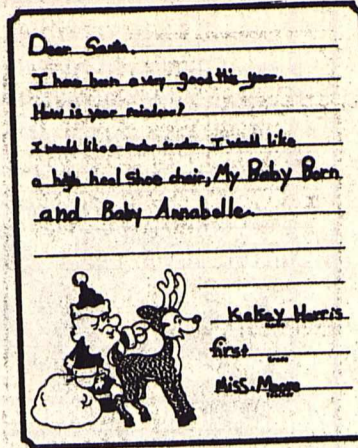 Dear Santa,
I have been a very good this year.
How is your reindeer?
I would like a scooter. I would like
a high heel shoe chair, My Baby Born
and Baby Annabelle.
Kelsey Harris
first
Miss. Moore